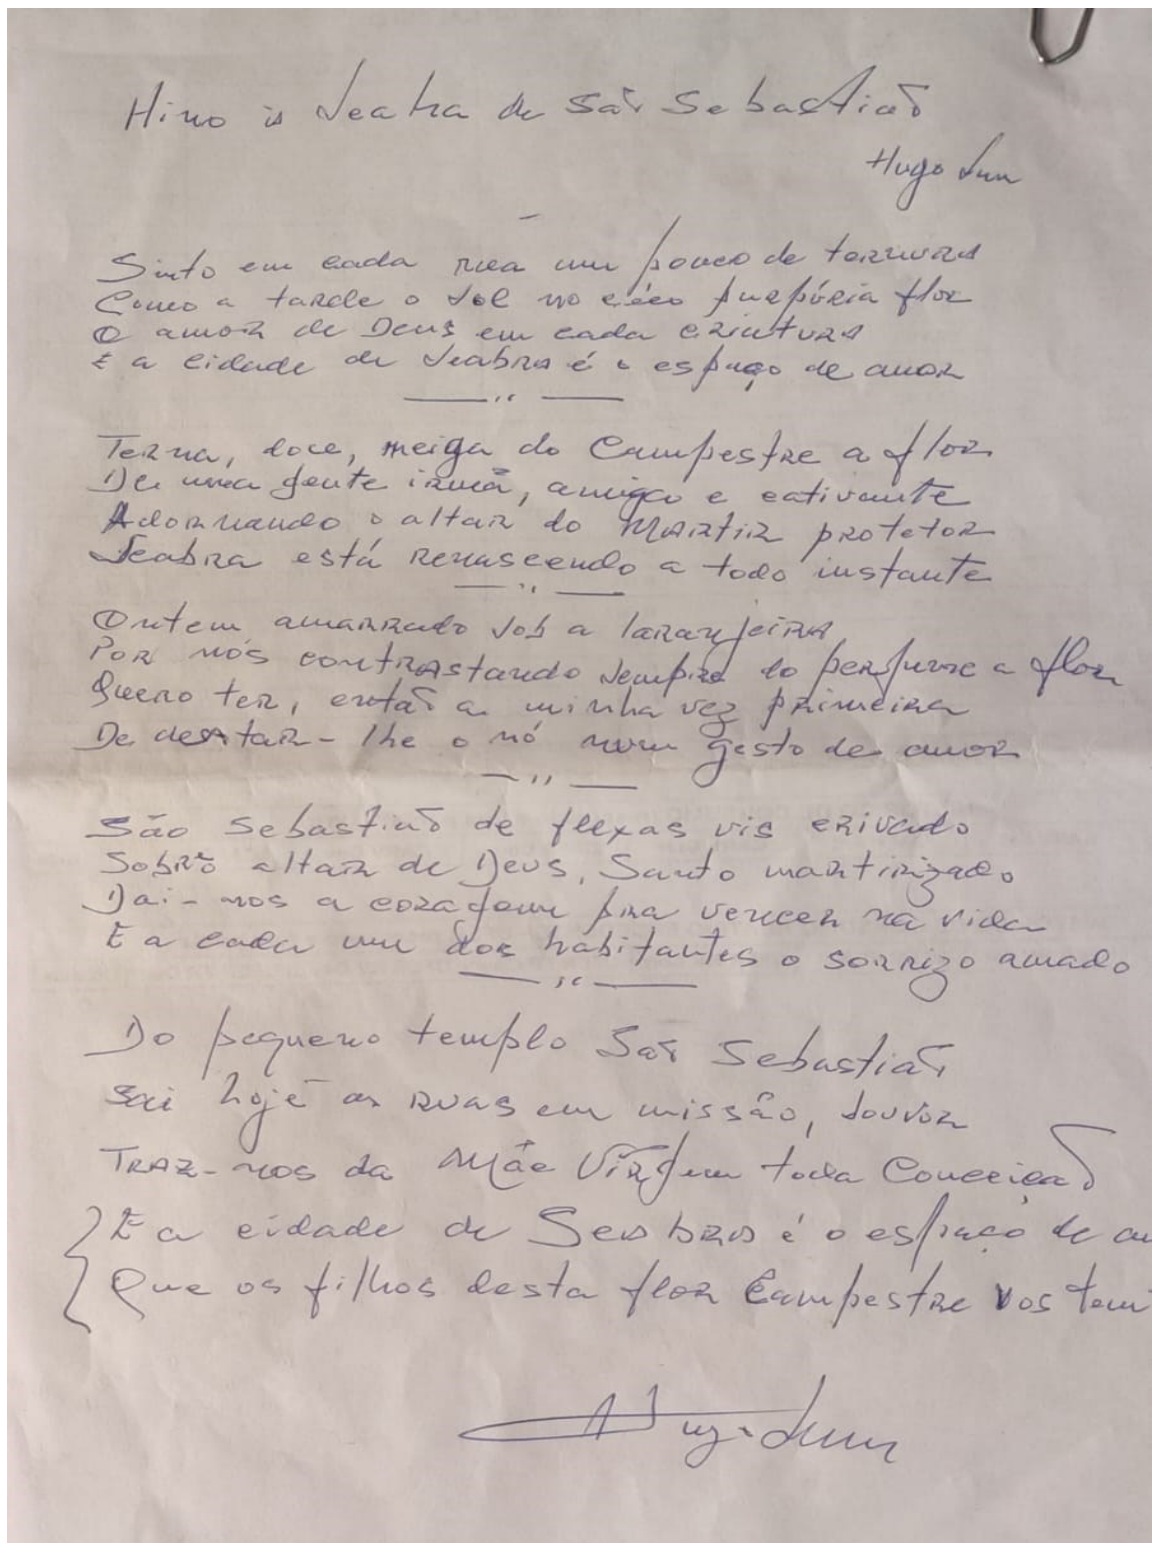 Hino à Seabra de São Sebastião
Hugo Luna
Sinto em cada rua um pouco de ternura
Como a tarde o sol no céeo purpúria flor
O amor de Deus em cada criatura
E a cidade de Seabra é o espaço de amor
Terna, doce, meiga do Campestre a flor
De uma gente irmã, amiga e cativante
Adornando o altar do Martir protetor
Seabra está renascendo a todo instante
Ontem amarrado sob a laranjeira
Por nós contrastando sempre do perfume a flor
Quero ter, então a minha vez primeira
De desatar-lhe o nó num gesto de amor
São Sebastião de flexas vis crivado
Sobrõ altar de Deus, Santo martirizado
Dai-nos a coragem pra vencer na vida
E a cada um dos habitantes o sorrizo amado
Do pequeno templo São Sebastião
Sai hoje as ruas em missão, louvor
Traz-nos da Mãe Virgem toda Conceição
E a cidade de Seabra é o espaço de
Que os filhos desta flor Campestre vos